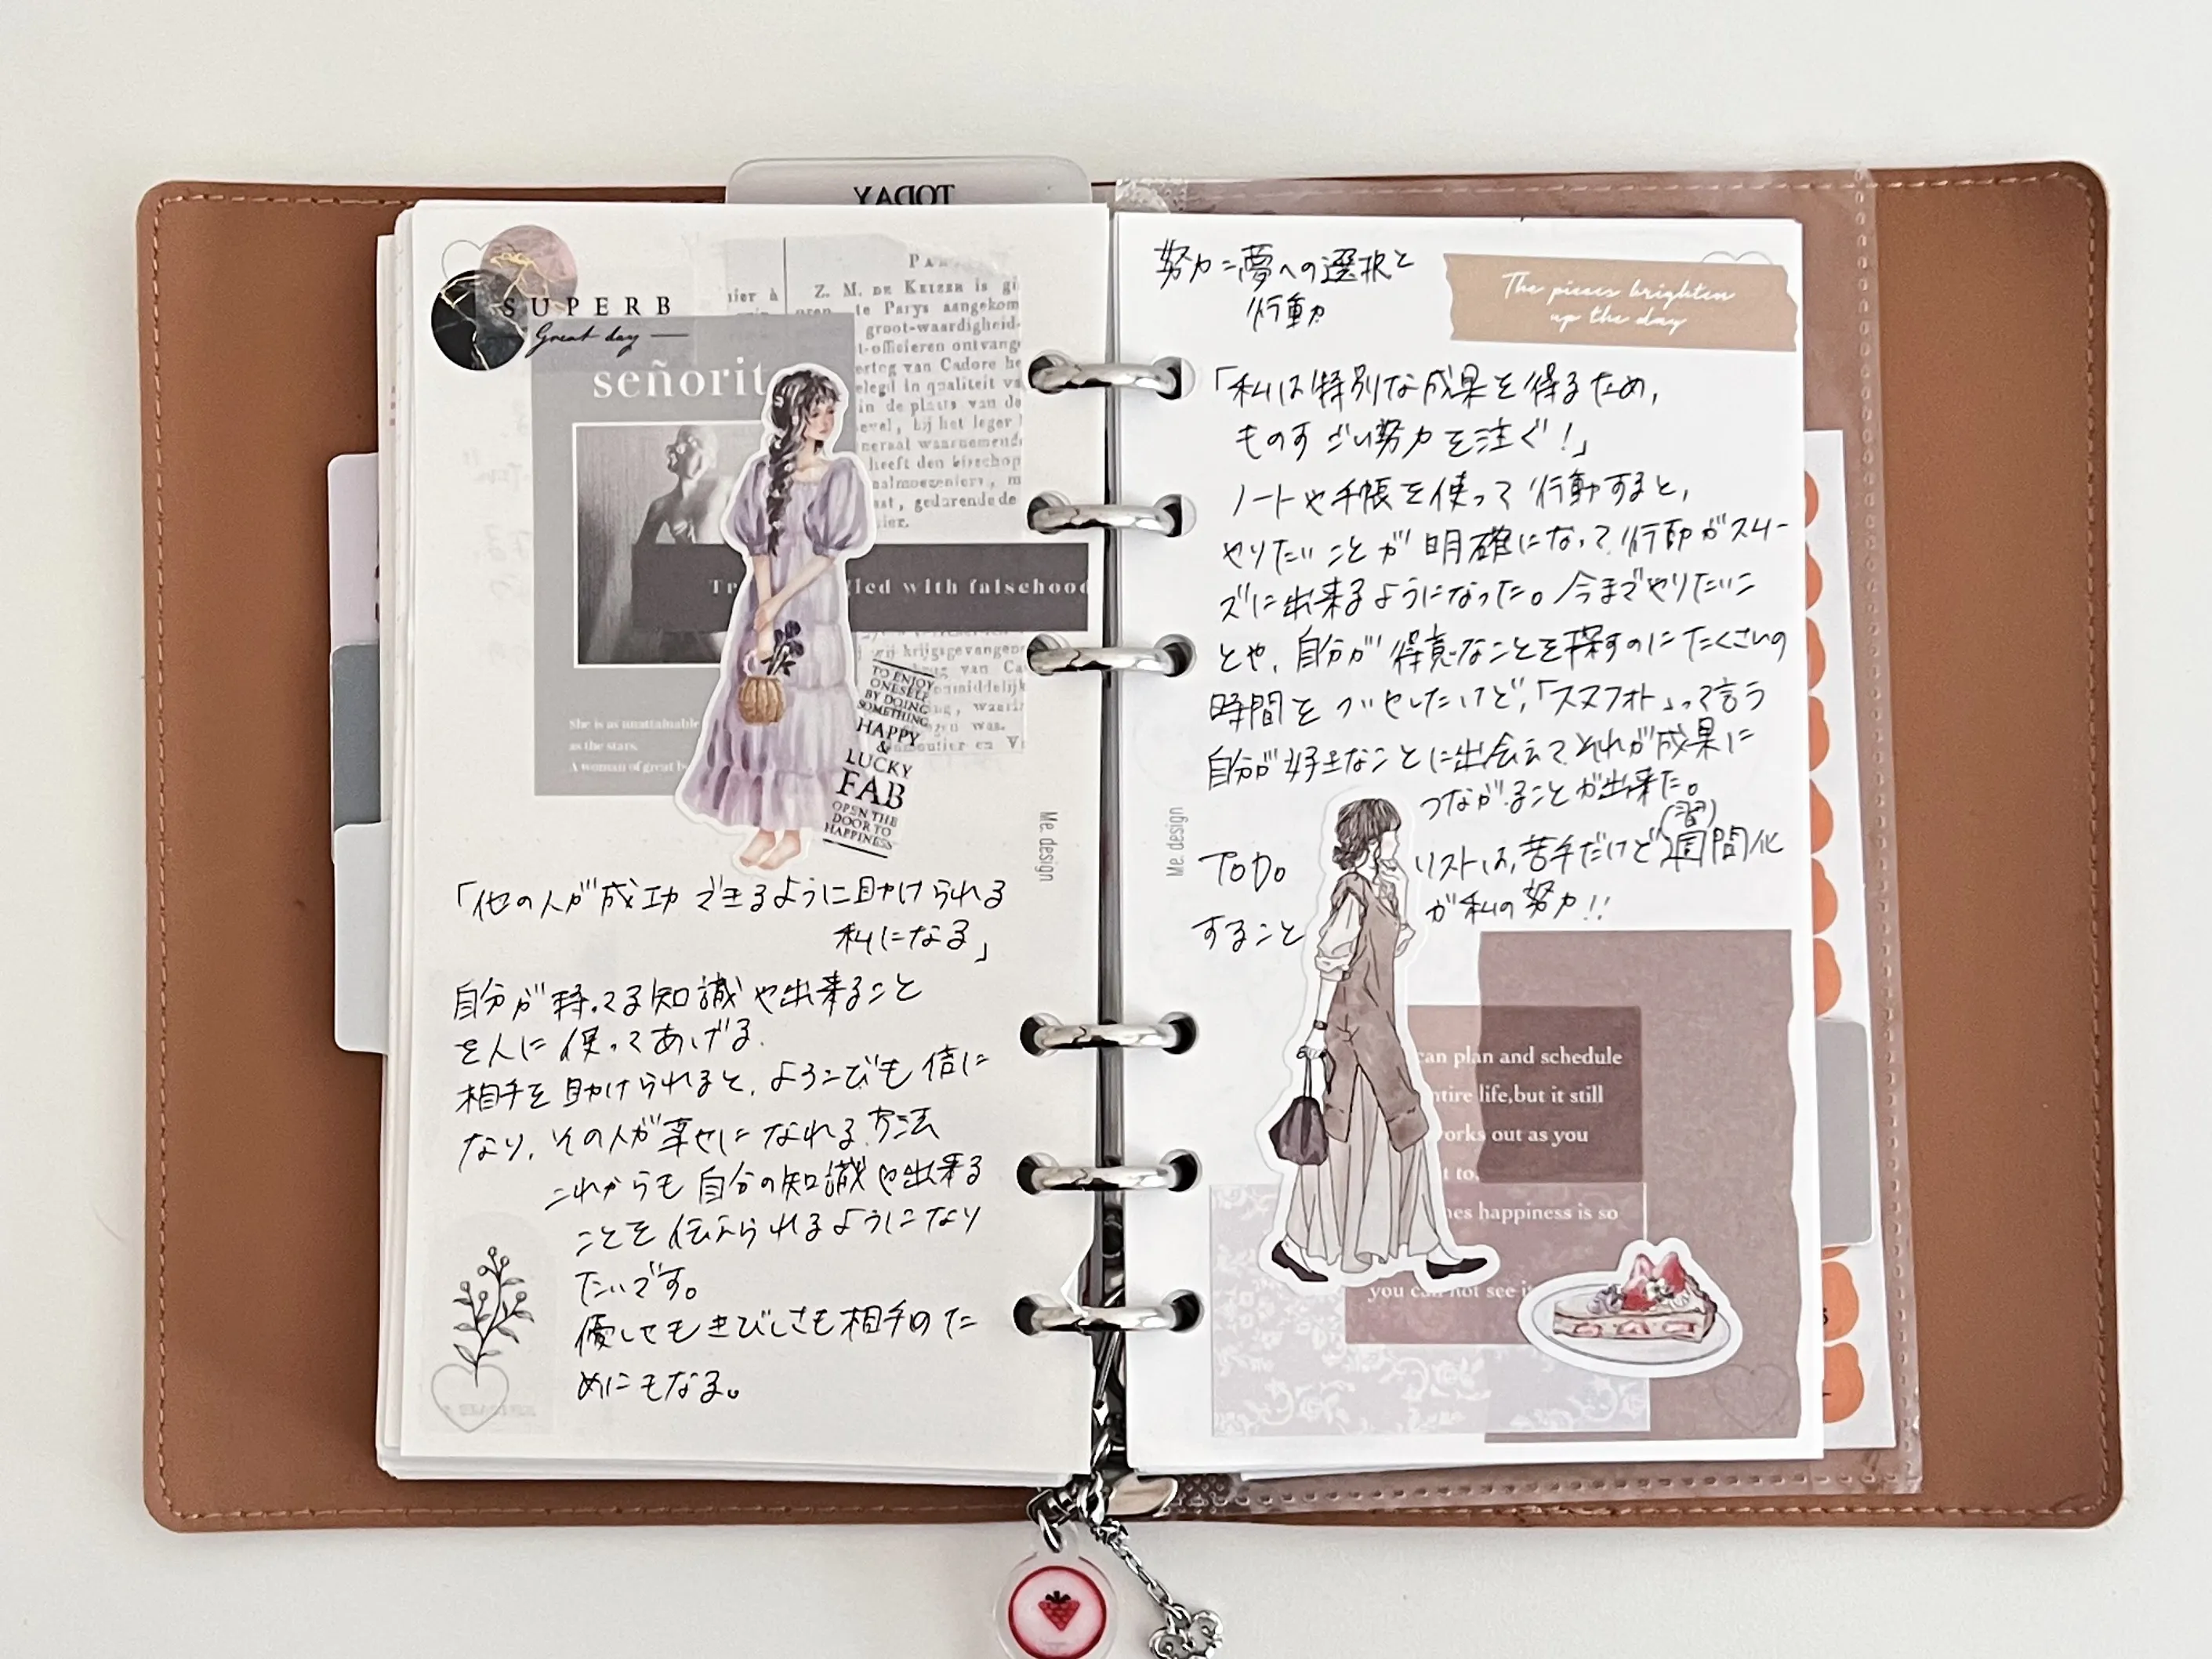 TODAY
SUPERB
Great day
señorit
PA
nier à
Z. M. DE KEIZER is gi
te Parys aangekom
groot-waardigheid-
t-officieren ontvang
ertog van Cadore he
elegd in qualiteit va
in de plaats van de
evel, bij het leger
neraal waarnemend
heeft den bisschop
aalmoezeniers, m
ast, gedurende de
ier.
Tr
led with falsehood
krijgsgevangen
van Ca
middelijk
was.
She is as unattainable
as the stars.
A woman of great b
TO ENJOY
ONESELF
BY DOING
SOMETHING
HAPPY
&
LUCKY
FAB
OPEN THE
DOOR TO
HAPPINESS
Me. design
「他の人が成功できるように助けられる
私になる」
自分が持ってる知識や出来ること
を人に使ってあげる.
相手を助けられると、よろこびも倍に
なり、その人が幸せになれる方法
これからも自分の知識や出来る
ことを伝えられるようになり
たいです。
優してもきびしさも相手のた
めにもなる。
努力=夢への選択と
行動力
The pieces brighten
up the day
「私は特別な成果を得るため,
ものすごい努力を注ぐ!」
ノートや手帳を使って行動すると,
やりたいことが明確になって行動がスムー
ズに出来るようになった。今までやりたいこ
とや、自分が得意なことを探すのにたくさんの
時間をついやしたけど,「スマフォト」って言う
自分が好きなことに出会えてそれが成果に
つながることが出来た。
Me. design
(習)
ToDo リストは、苦手だけど週間化
すること が私の努力!!
can plan and schedule
ntire life,but it still
orks out as you
t to.
nes happiness is so
you can not see it